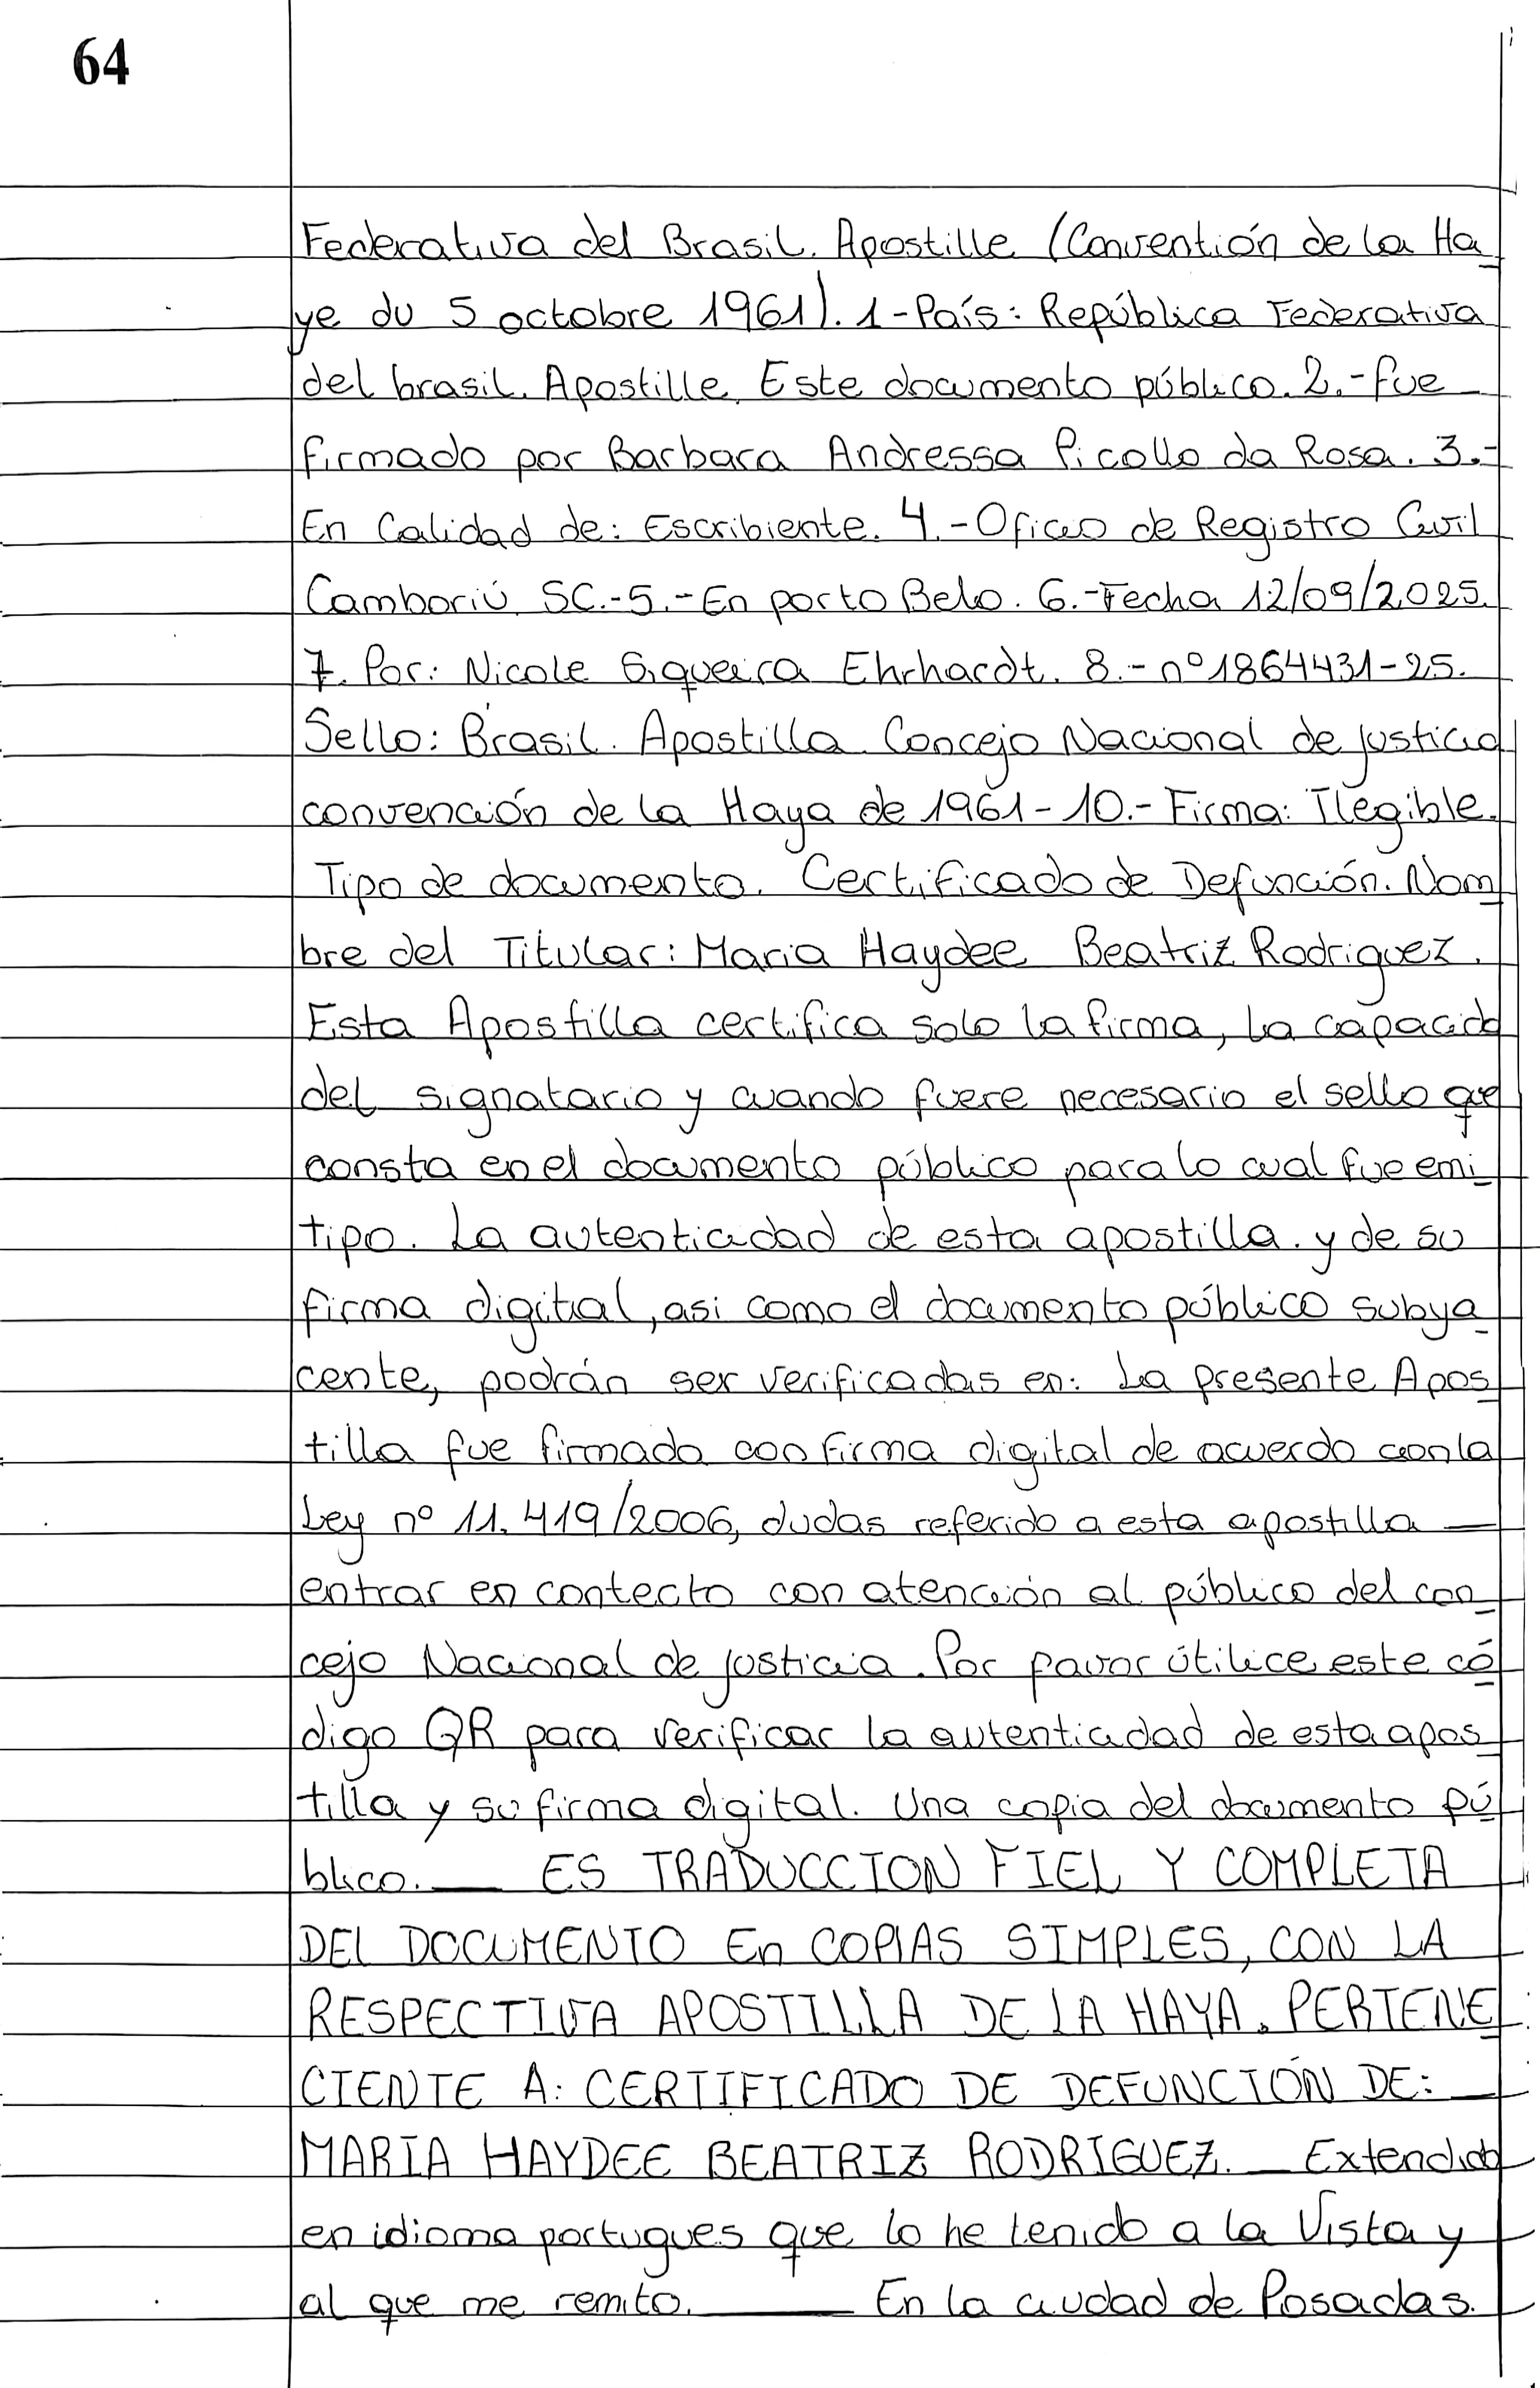 64
Federativa del Brasil. Apostille (Convención de la Ha
ye du 5 octobre 1961). 1-País: República Federativa
del brasil. Apostille. Este documento público. 2.-fue
firmado por Barbara Andressa Picollo da Rosa. 3.-
En Calidad de: Escribiente. 4.-Oficio de Registro Civil
Camboriú SC.-5.-En porto Belo. 6.-Fecha 12/09/2025.
7. Por: Nicole Siqueira Ehrhardt. 8.- nº1864431-25.
Sello: Brasil. Apostilla. Concejo Nacional de justicia
convención de la Haya de 1961-10.-Firma: Ilegible.
Tipo de documento. Certificado de Defunción. Nom
bre del Titular: Maria Haydee Beatriz Rodriguez.
Esta Apostilla certifica solo la firma, la capacida
del signatario y cuando fuere necesario el sello que
consta en el documento público para lo cual fue emi
tipo. La autenticidad de esta apostilla. y de su
firma digitial, asi como el documento público subya
cente, podrán ser verificadas en: La presente Apos
tilla fue firmada con firma digital de acuerdo con la
Ley nº 11.419/2006, dudas referido a esta apostilla —
entrar en contecto con atención al público del con
cejo Nacional de justicia. Por favor útilice este có
digo QR para verificar la autenticidad de esta apos
tilla y su firma digital. Una copia del documento pú
blico. — ES TRADUCCION FIEL Y COMPLETA
DEL DOCUMENTO En COPIAS SIMPLES, CON LA
RESPECTIVA APOSTILLA DE LA HAYA. PERTENE
CIENTE A: CERTIFICADO DE DEFUNCIÓN DE: —
MARIA HAYDEE BEATRIZ RODRIGUEZ. — Extendido
en idioma portugues que lo he tenido a la Vista y
al que me remito. — En la ciudad de Posadas.